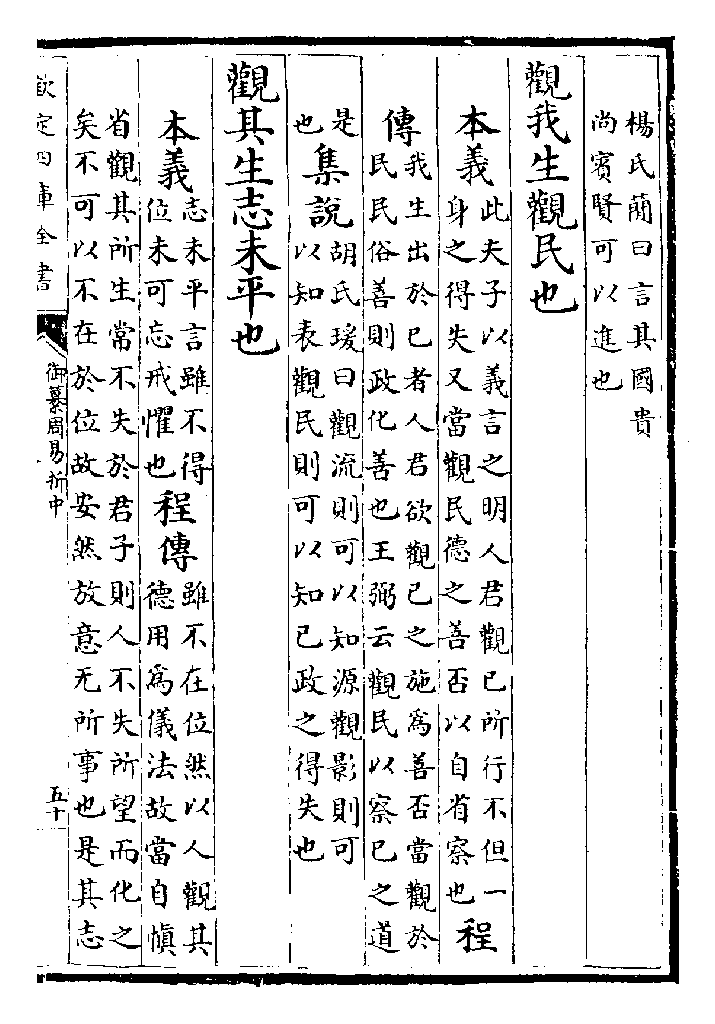 楊氏簡曰言其國貴
尚賓賢可以進也
觀我生觀民也
本義此夫子以義言之明人君觀已所行不但一
身之得失又當觀民德之善否以自省察也程
傳我生出於已者人君欲觀已之施為善否當觀於
民民俗善則政化善也王弼云觀民以察已之道
是
也集說胡氏瑗曰觀流則可以知源觀影則可
以知表觀民則可以知已政之得失也
觀其生志未平也
本義志未平言雖不得
位未可忘戒懼也程傳雖不在位然以人觀其
德用為儀法故當自慎
省觀其所生常不失於君子則人不失所望而化之
矣不可以不在於位故安然放意无所事也是其志
欽定四庫全書
御纂周易折中
五十